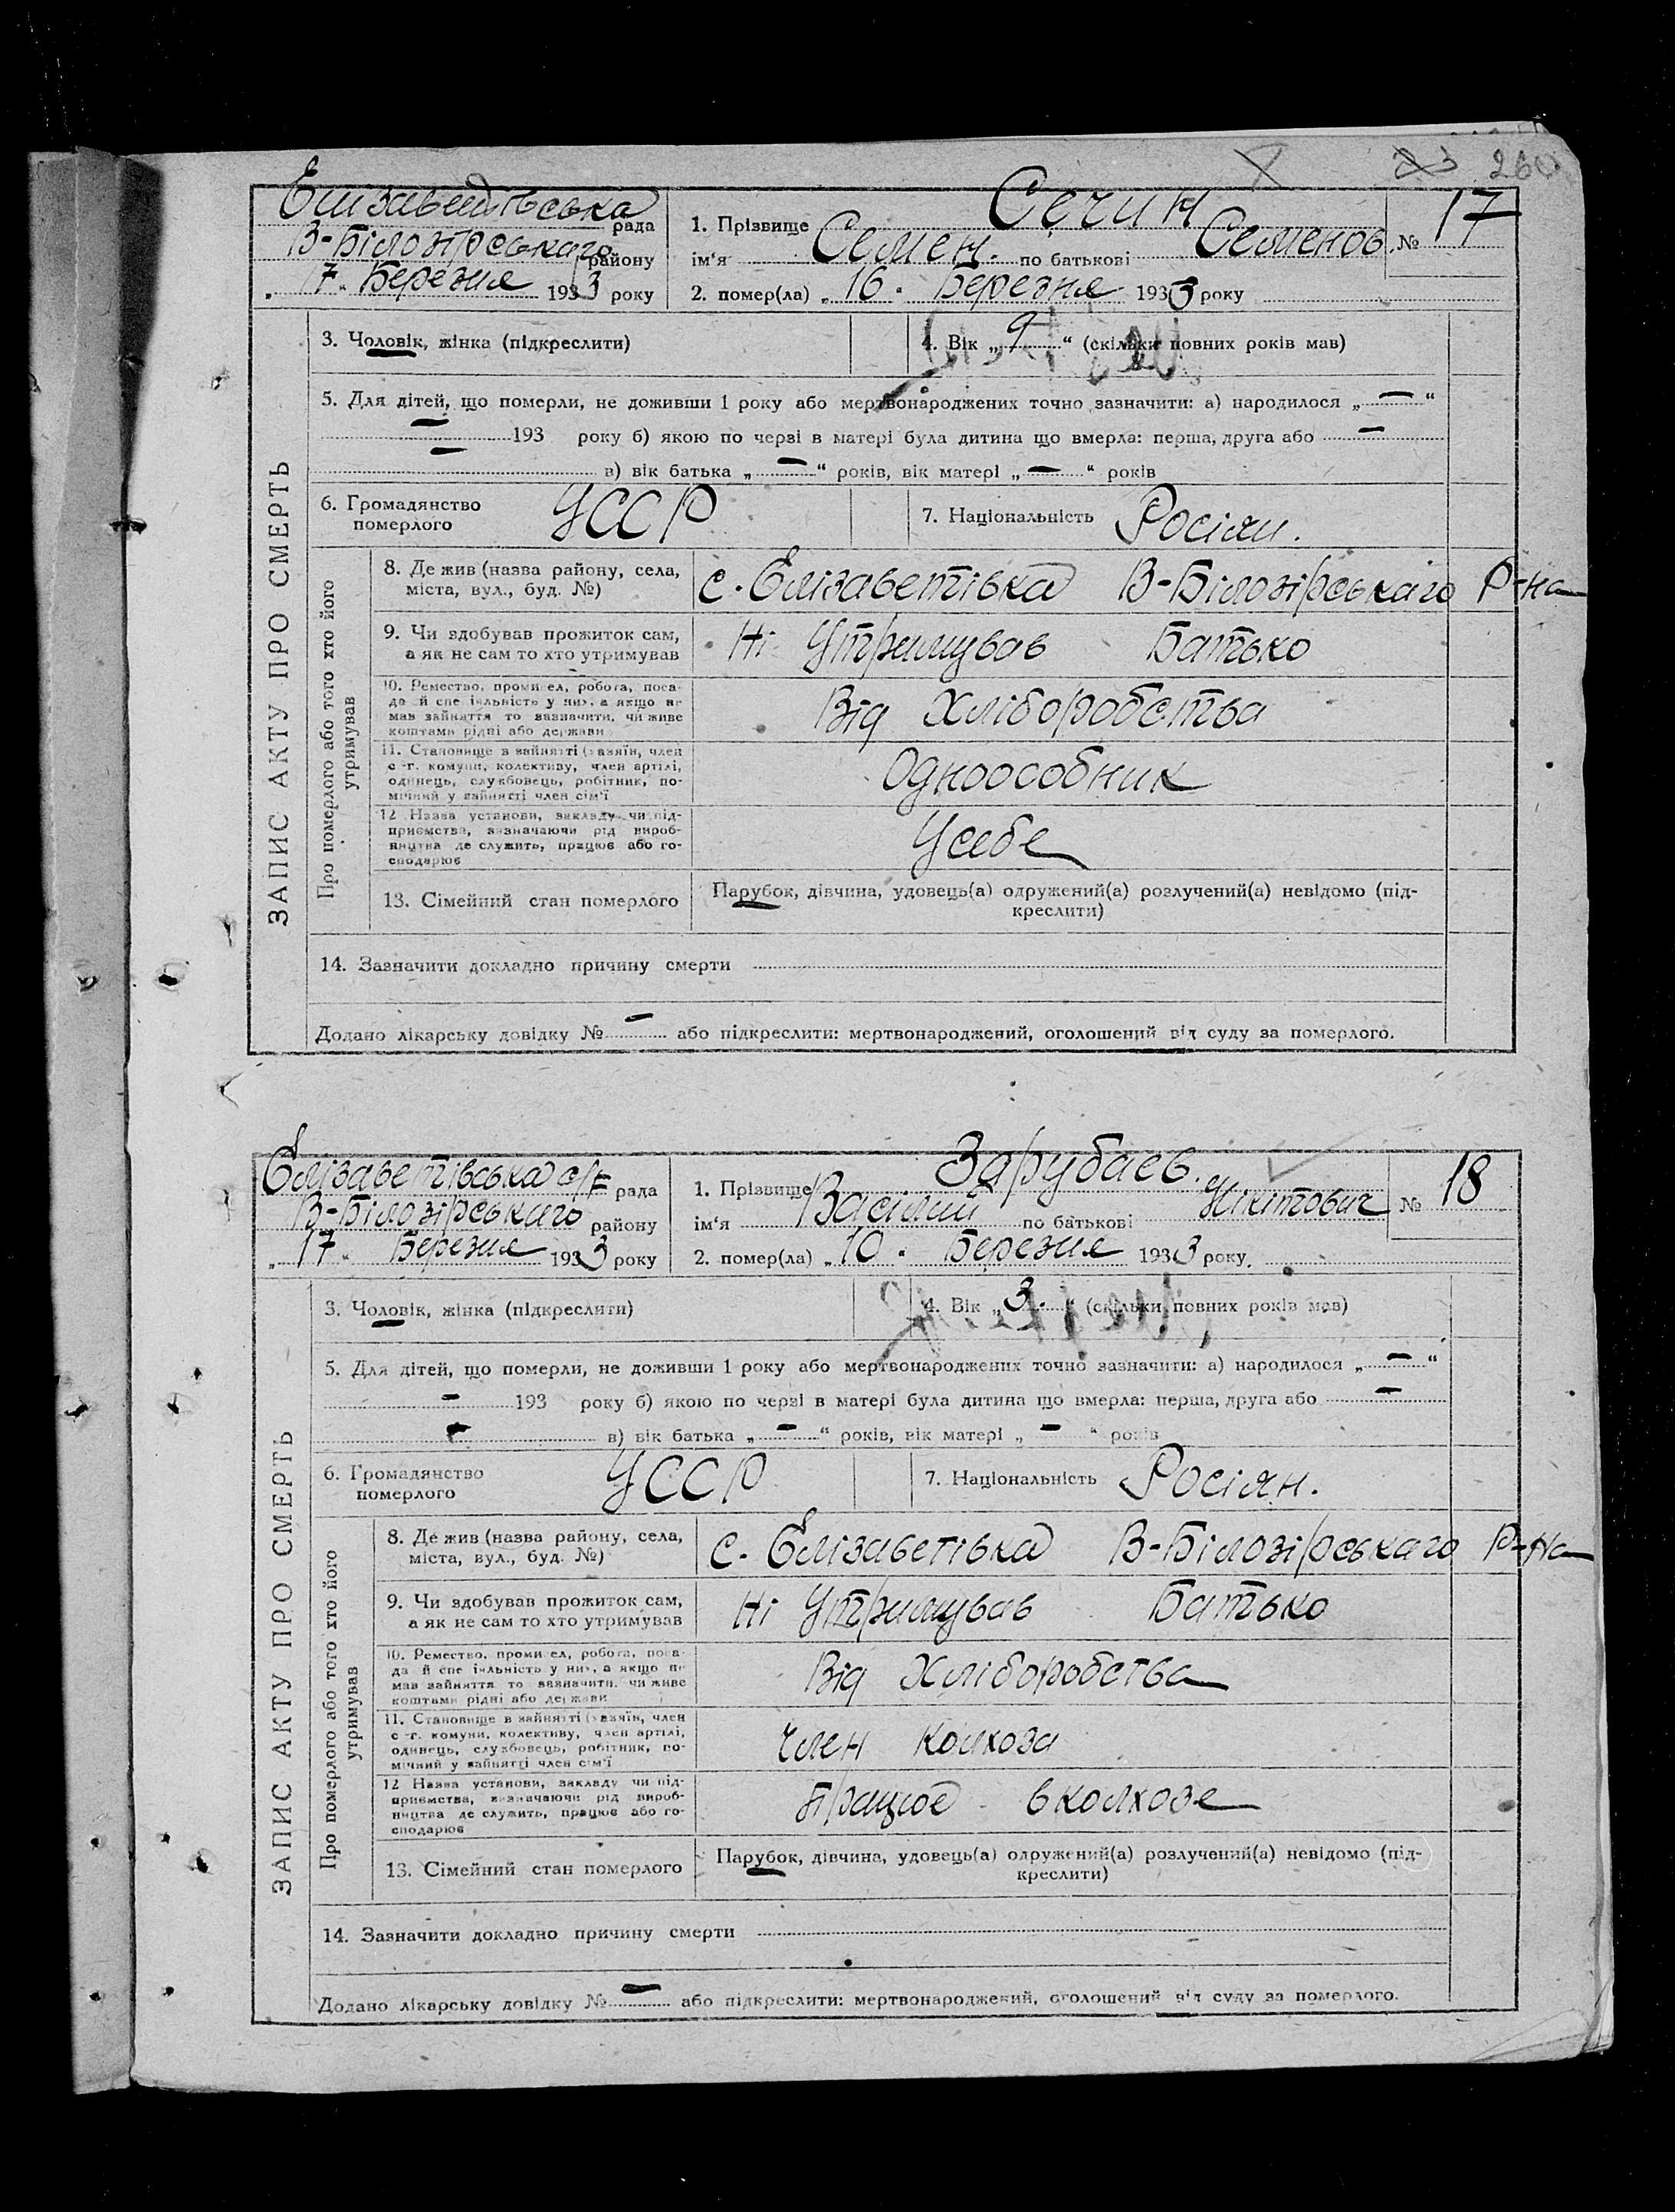 260
Єлізаветівська рада
В-Білозірськаго району
„ 7 " Березня 1933 року
1. Прізвище Сечин
ім'я Семен. по батькові Семенов.
№ 17
2. помер(ла) „ 16 . Березня 1933 року
ЗАПИС АКТУ ПРО СМЕРТЬ
3. Чоловік, жінка (підкреслити)
4. Вік „ 9 " (скільки повних років мав)
5. Для дітей, що померли, не доживши 1 року або мертвонароджених точно зазначити: а) народилося „ — "
— 193 року б) якою по черзі в матері була дитина що вмерла: перша, друга або —
— в) вік батька „ — " років, вік матері „ — " років
6. Громадянство померлого УССР
7. Національність Росіян.
Про померлого або того хто його утримував
8. Де жив (назва району, села,
міста, вул., буд. №)
с. Єлізаветівка В-Білозірськаго Р-на
9. Чи здобував прожиток сам,
а як не сам то хто утримував
Ні Утримував Батько
10. Ремество, промисел, робота, поса-
да й спеціяльність у них, а якщо не
мав зайняття то зазначити, чи живе
коштами рідні або держави
Від Хліборобства
11. Становище в зайнятті (хазяїн, член
с.-г. комуни, колективу, член артілі,
одинець, службовець, робітник, по-
мічний у зайнятті член сім'ї
Одноособник
12 Назва установи, закладу чи під-
приємства, зазначаючи рід вироб-
ництва де служить, працює або го-
сподарює
Усебе
13. Сімейний стан померлого
Парубок, дівчина, удовець(а) одружений(а) розлучений(а) невідомо (під-
креслити)
14. Зазначити докладно причину смерти
Додано лікарську довідку № — або підкреслити: мертвонароджений, оголошений від суду за померлого.
Єлізаветівська с/г рада
В-Білозірськаго району
„ 17 " Березня 1933 року
1. Прізвище Зарубаев.
ім'я Васілий по батькові Нікітович
№ 18
2. помер(ла) „ 10 . Березня 1933 року.
ЗАПИС АКТУ ПРО СМЕРТЬ
3. Чоловік, жінка (підкреслити)
4. Вік „ 3. " (скільки повних років мав)
5. Для дітей, що померли, не доживши 1 року або мертвонароджених точно зазначити: а) народилося „ — "
— 193 року б) якою по черзі в матері була дитина що вмерла: перша, друга або —
— в) вік батька „ — " років, вік матері „ — " років
6. Громадянство померлого УССР
7. Національність Росіян.
Про померлого або того хто його утримував
8. Де жив (назва району, села,
міста, вул., буд. №)
с. Єлізаветівка В-Білозірськаго Р-на
9. Чи здобував прожиток сам,
а як не сам то хто утримував
Ні Утримував Батько
10. Ремество, промисел, робота, поса-
да й спеціяльність у них, а якщо не
мав зайняття то зазначити, чи живе
коштами рідні або держави
Від Хліборобства
11. Становище в зайнятті (хазяїн, член
с.-г. комуни, колективу, член артілі,
одинець, службовець, робітник, по-
мічний у зайнятті член сім'ї
член колхоза
12 Назва установи, закладу чи під-
приємства, зазначаючи рід вироб-
ництва де служить, працює або го-
сподарює
працює в колхозе
13. Сімейний стан померлого
Парубок, дівчина, удовець(а) одружений(а) розлучений(а) невідомо (під-
креслити)
14. Зазначити докладно причину смерти
Додано лікарську довідку № — або підкреслити: мертвонароджений, оголошений від суду за померлого.